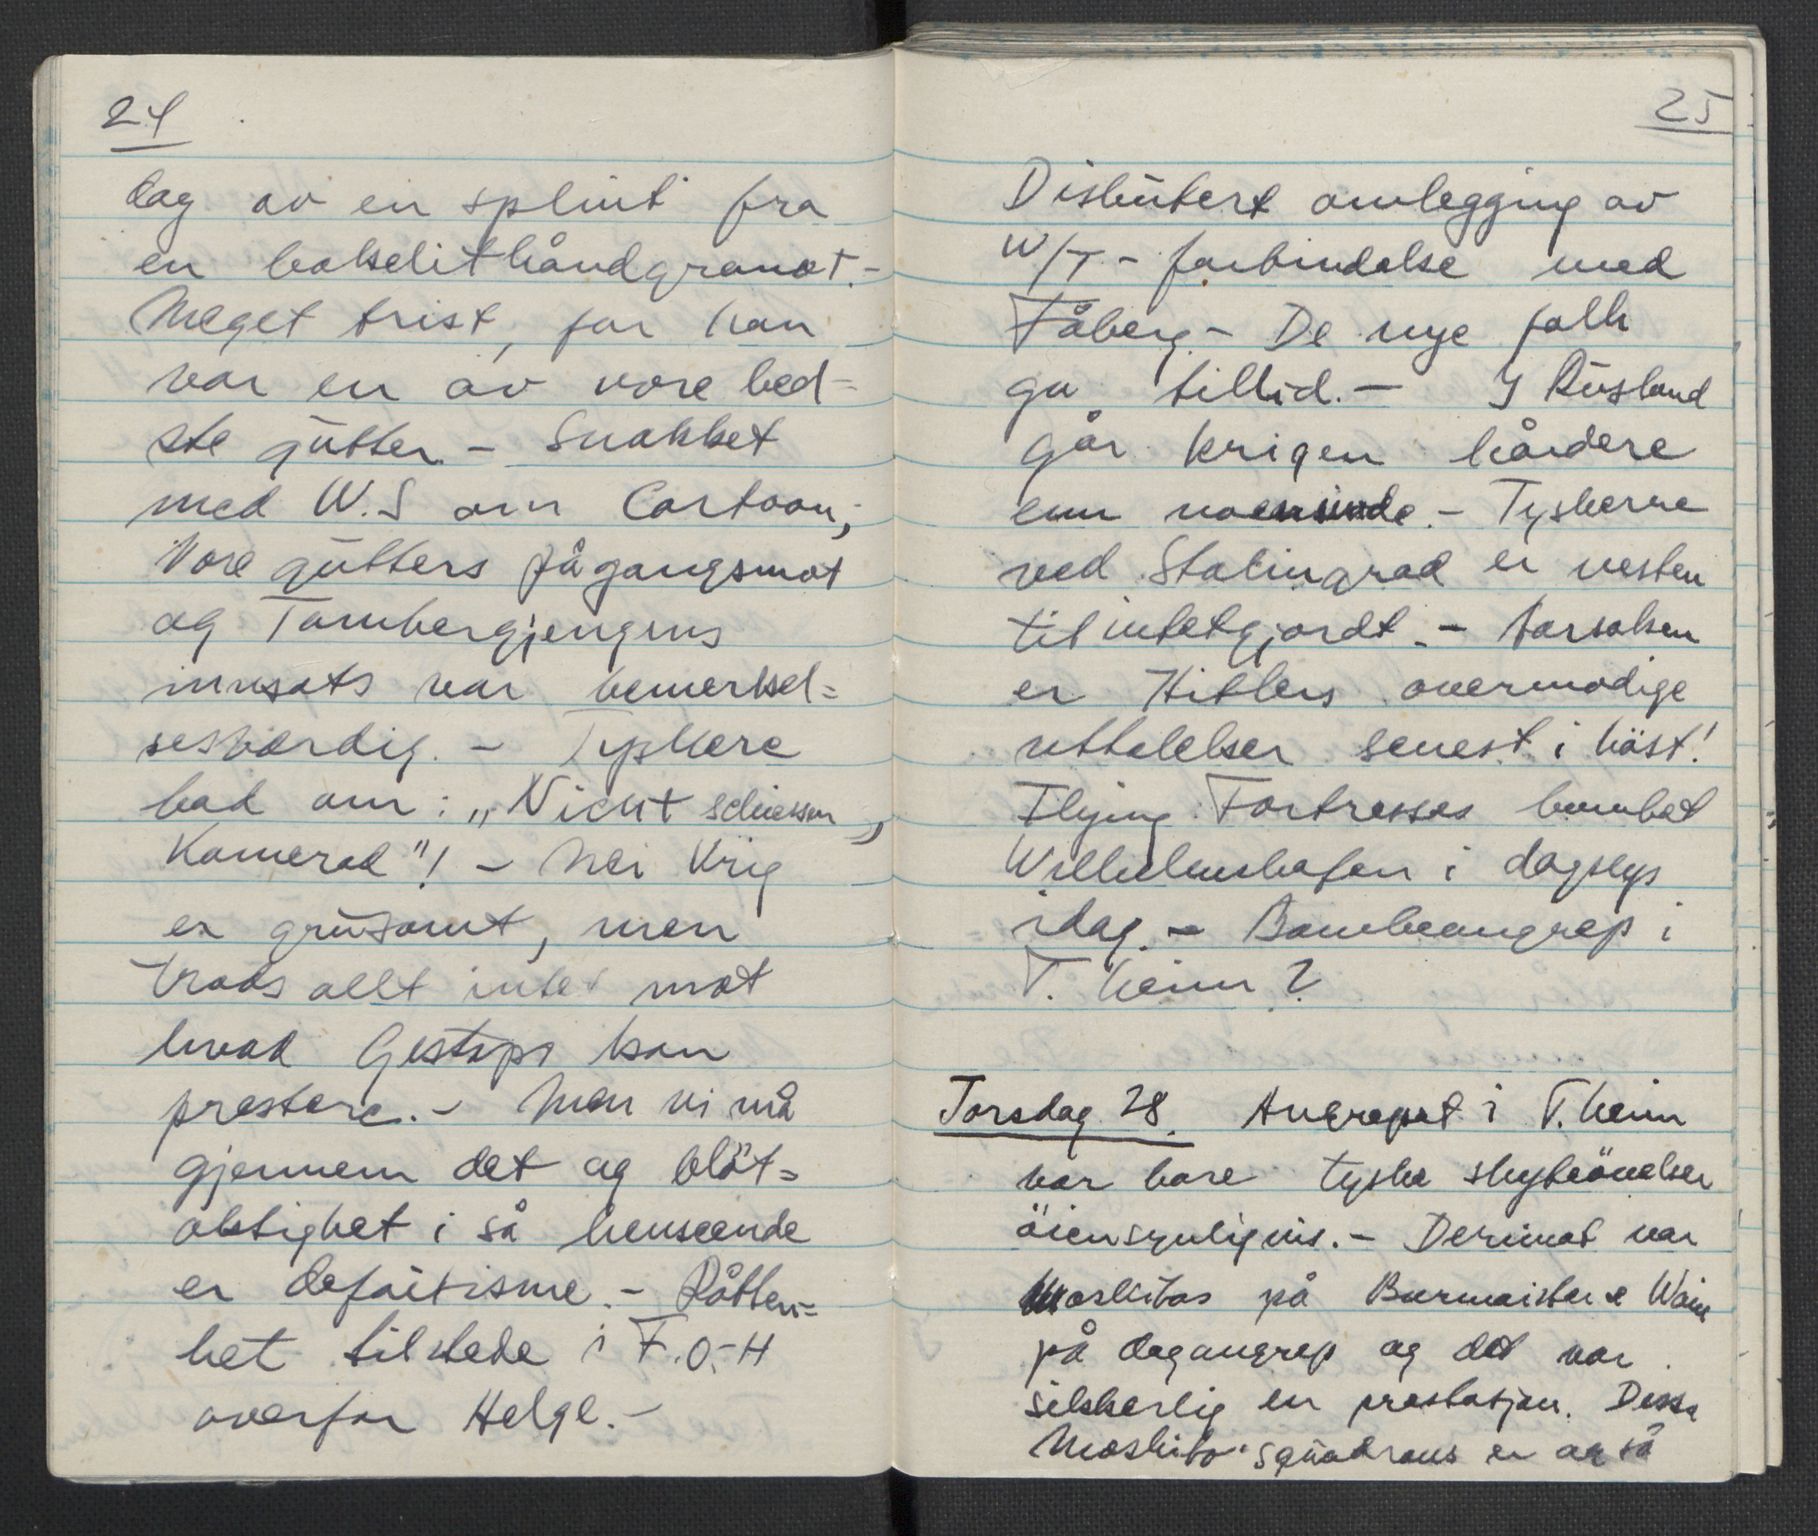 24
dag av en splint fra
en bakelithåndgranat. -
Meget trist, for han
var en av vore bed-
ste gutter - Snakket
med W.S om Cartoon,;
Vore gutters pågangsmot
og Tambergjengens
innsats var bemerksel=
sesværdig. - Tyskere
bad om: „Nicht schiessen,
Kamerad"! - Nei Krig
er grusomt, men
trods allt intet mot
hvad Gestapo kan
prestere. - Men vi må
gjennem det og blöt=
aktighet i så henseende
er defaitisme. - Råtten=
het tilstede i F.O.-H
overfor Helge. -
25
Diskutert omlegging av
W/T - forbindelse med
Fåberg. - De nye folk
gir tillid. - I Rusland
går krigen hårdere
enn noensinde. - Tyskerne
ved Stalingrad er nesten
tilintetgjordt. - Varsolsen
er Hitlers overmodige
uttalelser senest i höst!
Flying Fortresses bombet
Wilhelmshafen i dagslys
idag. - Bombeangrep i
T. heim?
Torsdag 28. Angrepet i T. heim
var bare tyske skyteövelser
öiensynligvis. - Derimot var
Moskitos på Burmeister & Wain
på dagangrep og det var
sikkerlig en prestasjon. Disse
Moskito squadrons er også